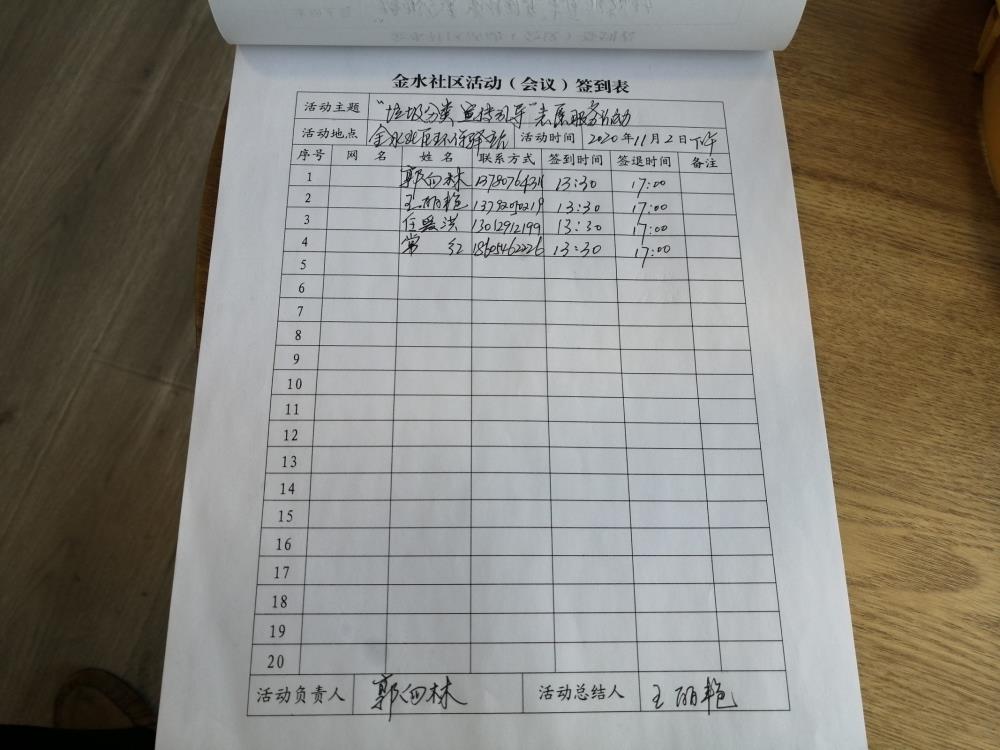 金水社区活动（会议）签到表
活动主题 "垃圾分类 宣传引导"志愿服务活动
活动地点 金水社区环保驿站 活动时间 2020年11月2日下午
序号 网 名 姓 名 联系方式 签到时间 签退时间 备注
1 郭向林 13:30 17:00
2 王丽艳 13:30 17:00
3 任爱洪 13012912199 13:30 17:00
4 常 红 18605462226 13:30 17:00
5
6
7
8
9
10
11
12
13
14
15
16
17
18
19
20
活动负责人 郭向林 活动总结人 王丽艳